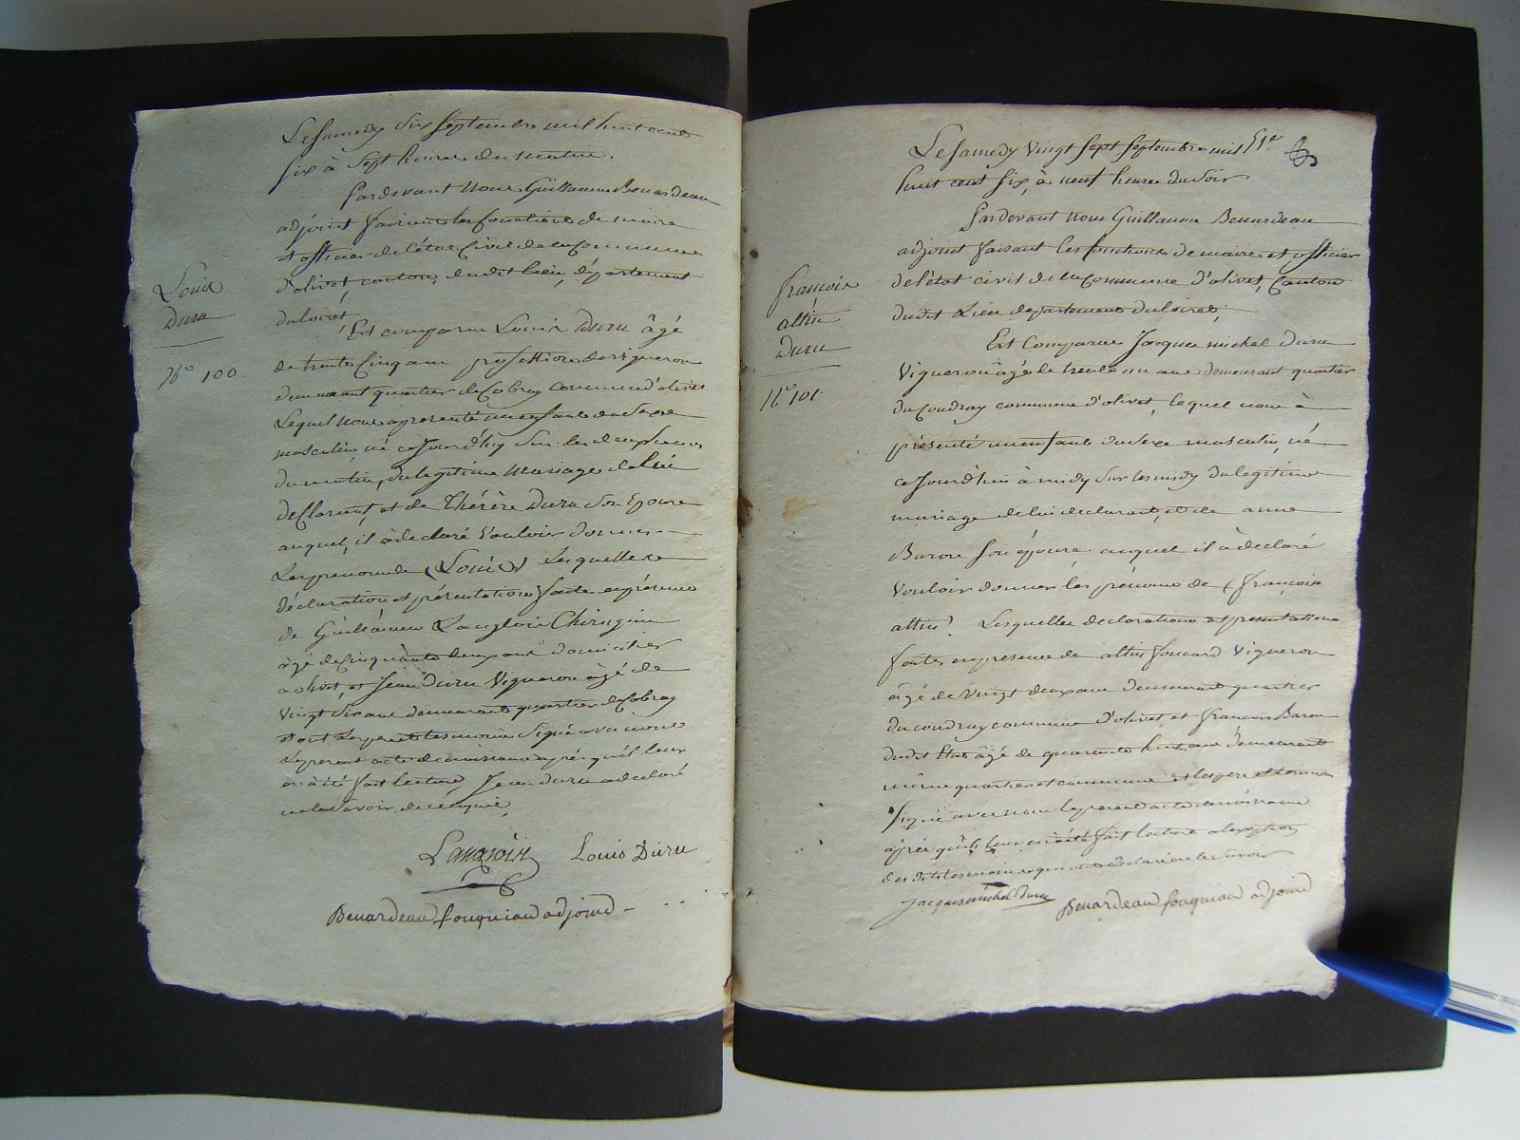 Le Samedy Six Septembre mil huit cent
Six à Sept heures du matin.
Pardevant Nous Guillaume Benardeau
adjoint faisant les fonctions de maire
et officier de l'état Civil de la Commune
d'olivet, canton dudit Lieu, département
du loiret,
Est comparu Louis Duru âgé
de trente Cinq ans profession de vigneron
demeurant quartier de Cobray commune d'olivet
Lequel nous a présenté un enfant du Sexe
masculin, né ce jourd'huy Sur les deux heures
du matin, du legitime Mariage de lui
declarant, et de Thérèse Duru Son Epouse
auquel il à declaré Vouloir donner
Les prenoms de (Louis) Lesquelles
déclaration et présentation faites en présence
de Guillaume Langlois Chirugien
âgé de Cinquante deux ans domicilié
a olivet, et Jean Duru Vigneron âgé de
Vingt Six ans demeurant quartier de Cobray
et ont Les pere et temoins Signé avec nous
Le present acte de naissance après qu'il leur
en à été fait lecture, Jean Duru a declaré
ne le Savoir de ce enquis,
Louis
Duru
No 100
Langlois Louis Duru
Benardeau fouqueau adjoind
Le Samedy Vingt Sept Septembre mil 51e
huit cent Six, à neuf heures du Soir
Pardevant nous Guillaume Benardeau
adjoint faisant les fonctions de maire et officier
de l'état civil de la Commune d'olivet, Canton
dudit Lieu departement du loiret,
Est Comparu Jacques michel Duru
Vigneron âgé de trente un ans demeurant quartier
du Coudray commune d'olivet, lequel nous à
présenté un enfant du Sexe masculin, né
ce Jourd'hui à midy Sur les midy du legitime
mariage de lui declarant, et de anne
Baron Son épouse auquel il à declaré
Vouloir donner les prénoms de (françois
altin) Lesquelles declaration et presentation
faites en presence de altin foucard Vigneron
âgé de Vingt deux ans demeurant quartier
du coudray commune d'olivet et francois Baron
dudit Etat âgé de quarante huit ans demeurant
même quartier et commune et les pere et temoins
Signé avec nous le present acte de naissance
après qu'il leur en à été fait lecture a l'exception
des dits temoins
françois
altin
Duru
No 101
Jacques michel Duru Benardeau fouqueau adjoind